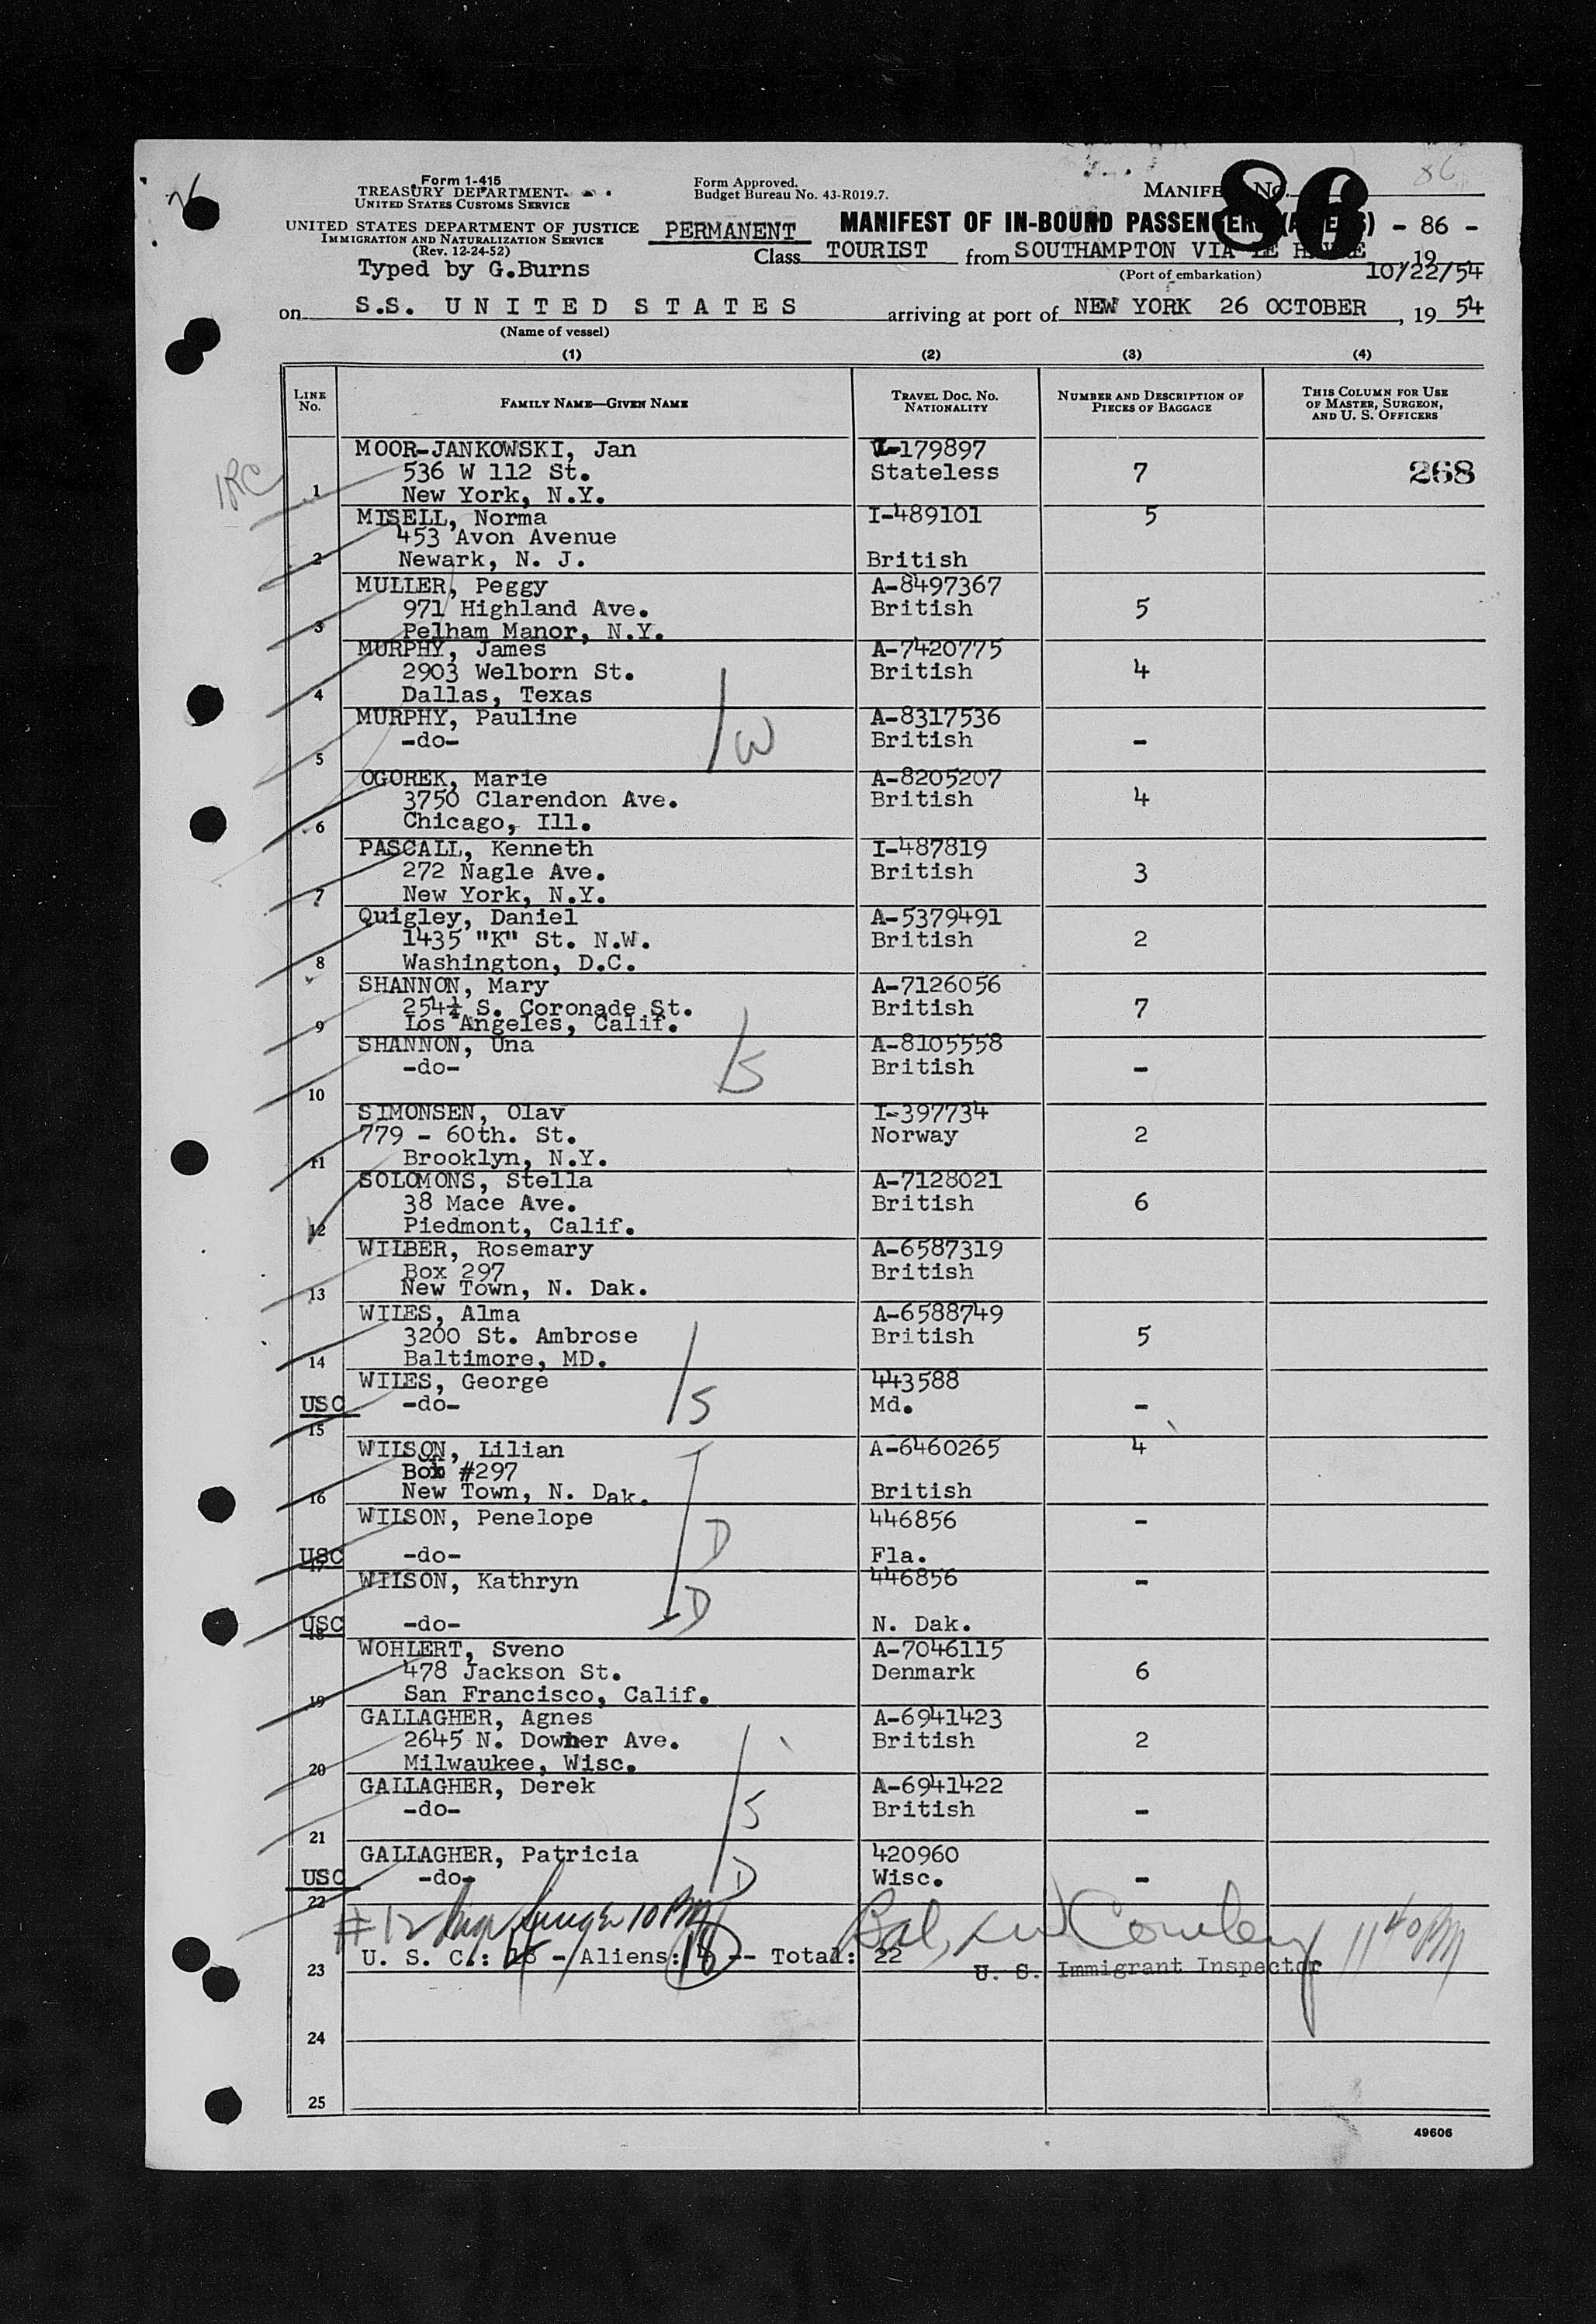 Form 1-415
TREASURY DEPARTMENT
UNITED STATES CUSTOMS SERVICE
UNITED STATES DEPARTMENT OF JUSTICE
IMMIGRATION AND NATURALIZATION SERVICE
(Rev. 12-24-52)
Typed by G.Burns
Form Approved.
Budget Bureau No. 43-R019.7.
86
MANIFEST No. 86
PERMANENT MANIFEST OF IN-BOUND PASSENGERS (ALIENS) - 86 -
Class TOURIST from SOUTHAMPTON VIA LE HAVRE, 19
(Port of embarkation) 10/22/54
on S.S. UNITED STATES arriving at port of NEW YORK 26 OCTOBER, 19 54
(Name of vessel)
(1) (2) (3) (4)
LINE No. FAMILY NAME—GIVEN NAME TRAVEL DOC. No. NATIONALITY NUMBER AND DESCRIPTION OF PIECES OF BAGGAGE THIS COLUMN FOR USE OF MASTER, SURGEON, AND U. S. OFFICERS
MOOR-JANKOWSKI, Jan -179897
536 W 112 St. Stateless 7 268
1 New York, N.Y.
MISELL, Norma I-489101 5
453 Avon Avenue
2 Newark, N. J. British
MULLER, Peggy A-8497367
971 Highland Ave. British 5
3 Pelham Manor, N.Y.
MURPHY, James A-7420775
2903 Welborn St. British 4
4 Dallas, Texas
MURPHY, Pauline A-8317536
-do- British -
5 W
OGOREK, Marie A-8205207
3750 Clarendon Ave. British 4
6 Chicago, Ill.
PASCALL, Kenneth I-487819
272 Nagle Ave. British 3
7 New York, N.Y.
Quigley, Daniel A-5379491
1435 "K" St. N.W. British 2
8 Washington, D.C.
SHANNON, Mary A-7126056
254½ S. Coronade St. British 7
9 Los Angeles, Calif.
SHANNON, Una A-8105558
-do- British -
10 S
SIMONSEN, Olav I-397734
779 - 60th. St. Norway 2
11 Brooklyn, N.Y.
SOLOMONS, Stella A-7128021
38 Mace Ave. British 6
12 Piedmont, Calif.
WILBER, Rosemary A-6587319
Box 297 British
13 New Town, N. Dak.
WILES, Alma A-6588749
3200 St. Ambrose British 5
14 Baltimore, MD.
WILES, George 443588
USC -do- S Md. -
15
WILSON, Lilian A-6460265 4
Box #297
16 New Town, N. Dak. British
WILSON, Penelope 446856 -
USC -do- D Fla.
17
WILSON, Kathryn 446856 -
USC -do- D N. Dak.
18
WOHLERT, Sveno A-7046115
478 Jackson St. Denmark 6
19 San Francisco, Calif.
GALLAGHER, Agnes A-6941423
2645 N. Downer Ave. British 2
20 Milwaukee, Wisc.
GALLAGHER, Derek A-6941422
-do- S British -
21
GALLAGHER, Patricia 420960
USC -do- D Wisc. -
22
#12 10 PM Bal, Cowley 11 40 PM
23 U. S. C.: - Aliens: 18 -- Total: 22
U. S. Immigrant Inspector
24
25
49606